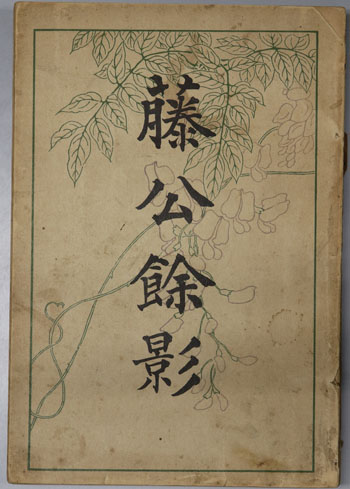 藤公餘影